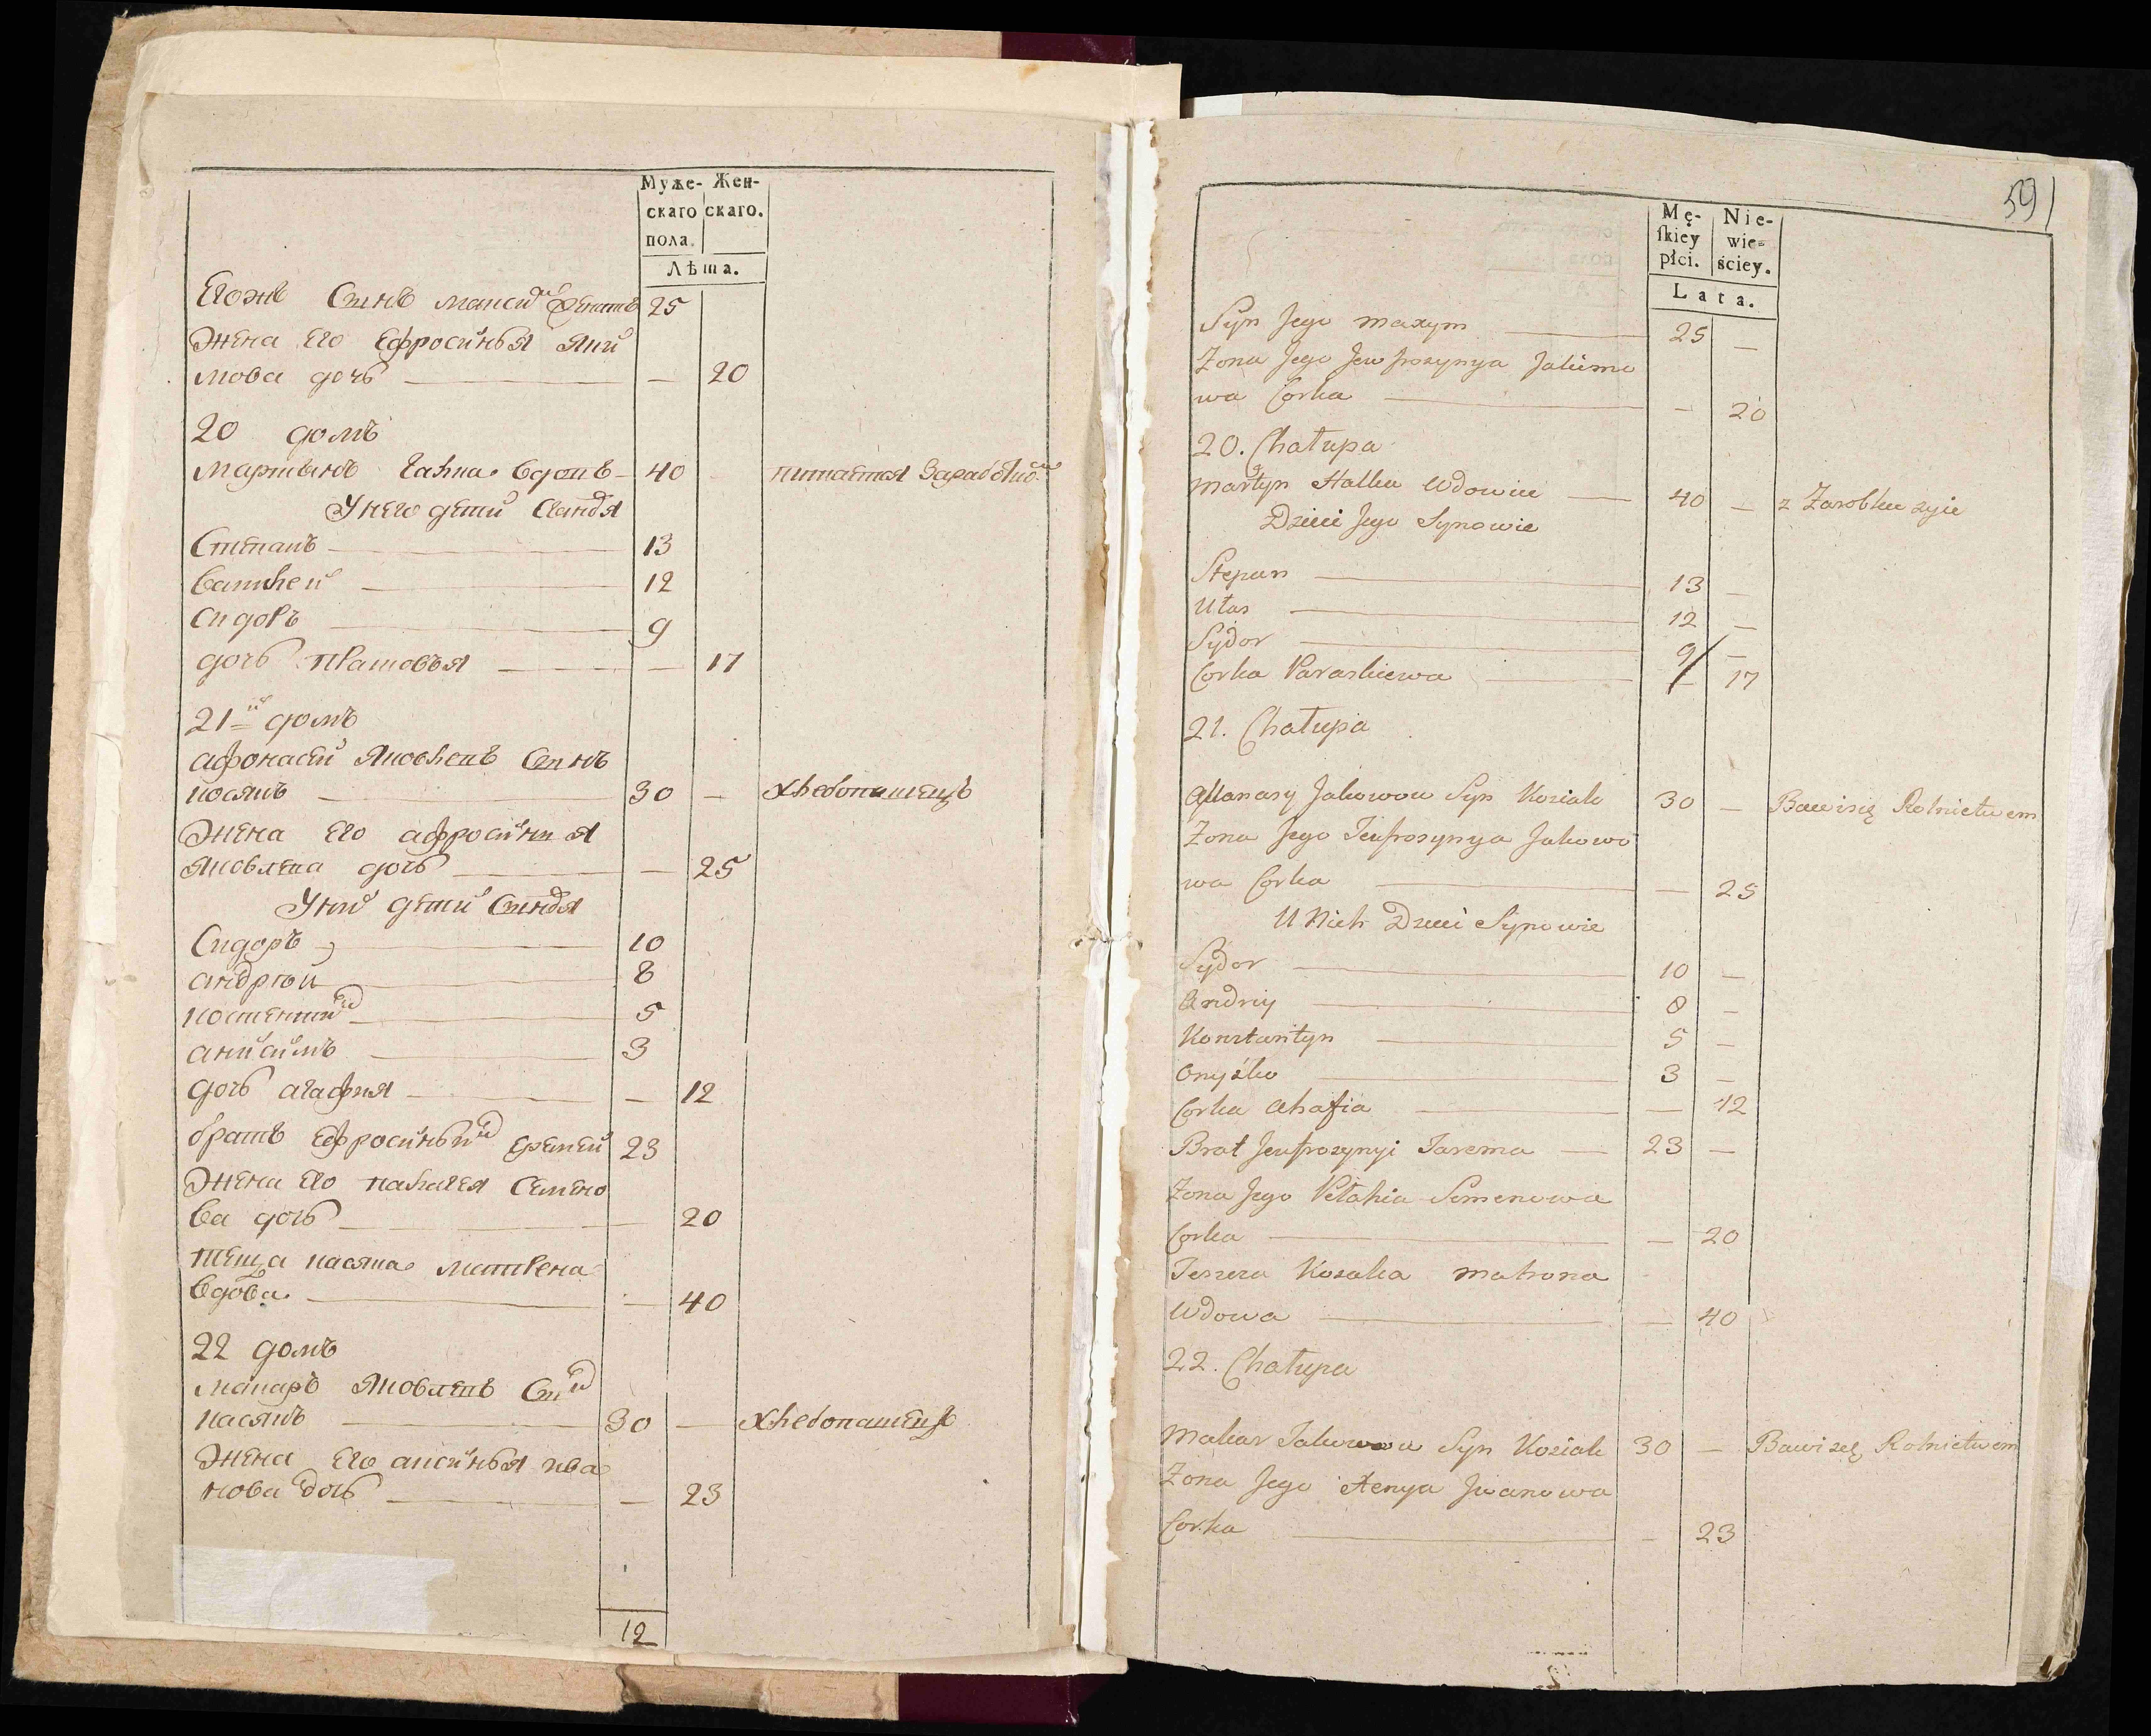 Муже- Жен-
скаго скаго.
пола.
Лѣта.
Егожъ Сынъ макси^м женатъ 25
жена его Ефросинья яки
мова дочь — 20
20 домъ
мартынъ галка вдовъ 40 питается Заработко^м
У него дети Сыновья
Степанъ 13
Власией 12
Сидоръ 9
дочь — 17
21^й домъ
афонасей яковлевъ Сынъ
козакъ 30 — хлебопашецъ
жена его афросинья
яковлева дочь — 25
У ни^х дети Сыновья
Сидоръ 10
андрей 8
костенти^н 5
анисимъ 3
дочь агафия — 12
братъ Ефросиньи^н Еремей 23
жена его палагея Семено
ва дочь — 20
теща казака матрена
вдова — 40
22 домъ
макаръ яковлевъ Сы^н
казакъ 30 — хлебопашецъ
жена его аксинья ива
нова дочь — 23
12
591
Mę- Nie-
skiey wie-
płci. ściey.
Lata.
Syn Jego Maxym 25 —
Zona Jego Jewfrozynya Jakimo
wa Corka — 20
20. Chałupa
Martyn Halka Wdowiec 40 — z Zarobku zyie
Dzieci Jego Synowie
Stepan 13 —
Ułas 12 —
Sydor 9 —
Corka Paraskiewa — 17
21. Chałupa
Affanasy Jakowow Syn Koziak 30 — Bawi się Rolnictwem
Zona Jego Jeufrosynya Jakowo
wa Corka — 25
U Nich Dzieci Synowie
Sydor 10 —
Andriy 8 —
Konstantyn 5 —
Onyśko 3 —
Corka Ahafia — 12
Brat Jeufrozynyi Jarema 23 —
Zona Jego Pełahia Semenowa
Corka — 20
Teszcza Kozaka Matrona
Wdowa — 40
22. Chałupa
Makar Jakowow Syn Koziak 30 — Bawi się Rolnictwem
Zona Jego Xenya Jwanowa
Corka — 23